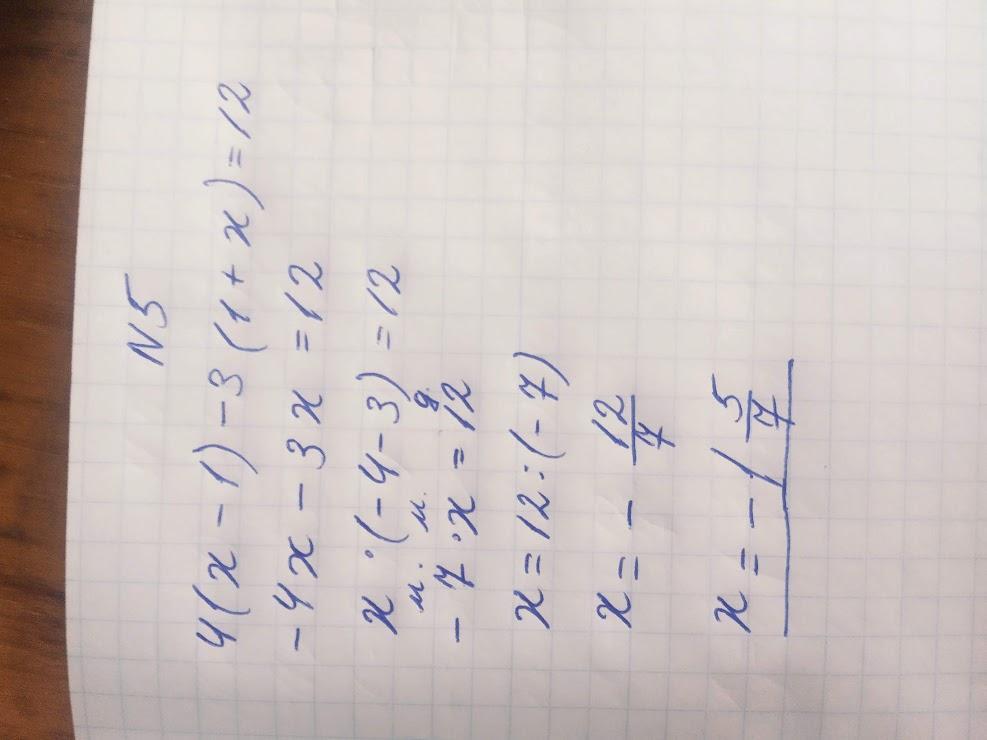 N5
4(x-1)-3(1+x)=12
-4x-3x=12
x·(-4-3)=12
м. м. д.
-7·x=12
x=12:(-7)
x=-12/7
x=-1 5/7